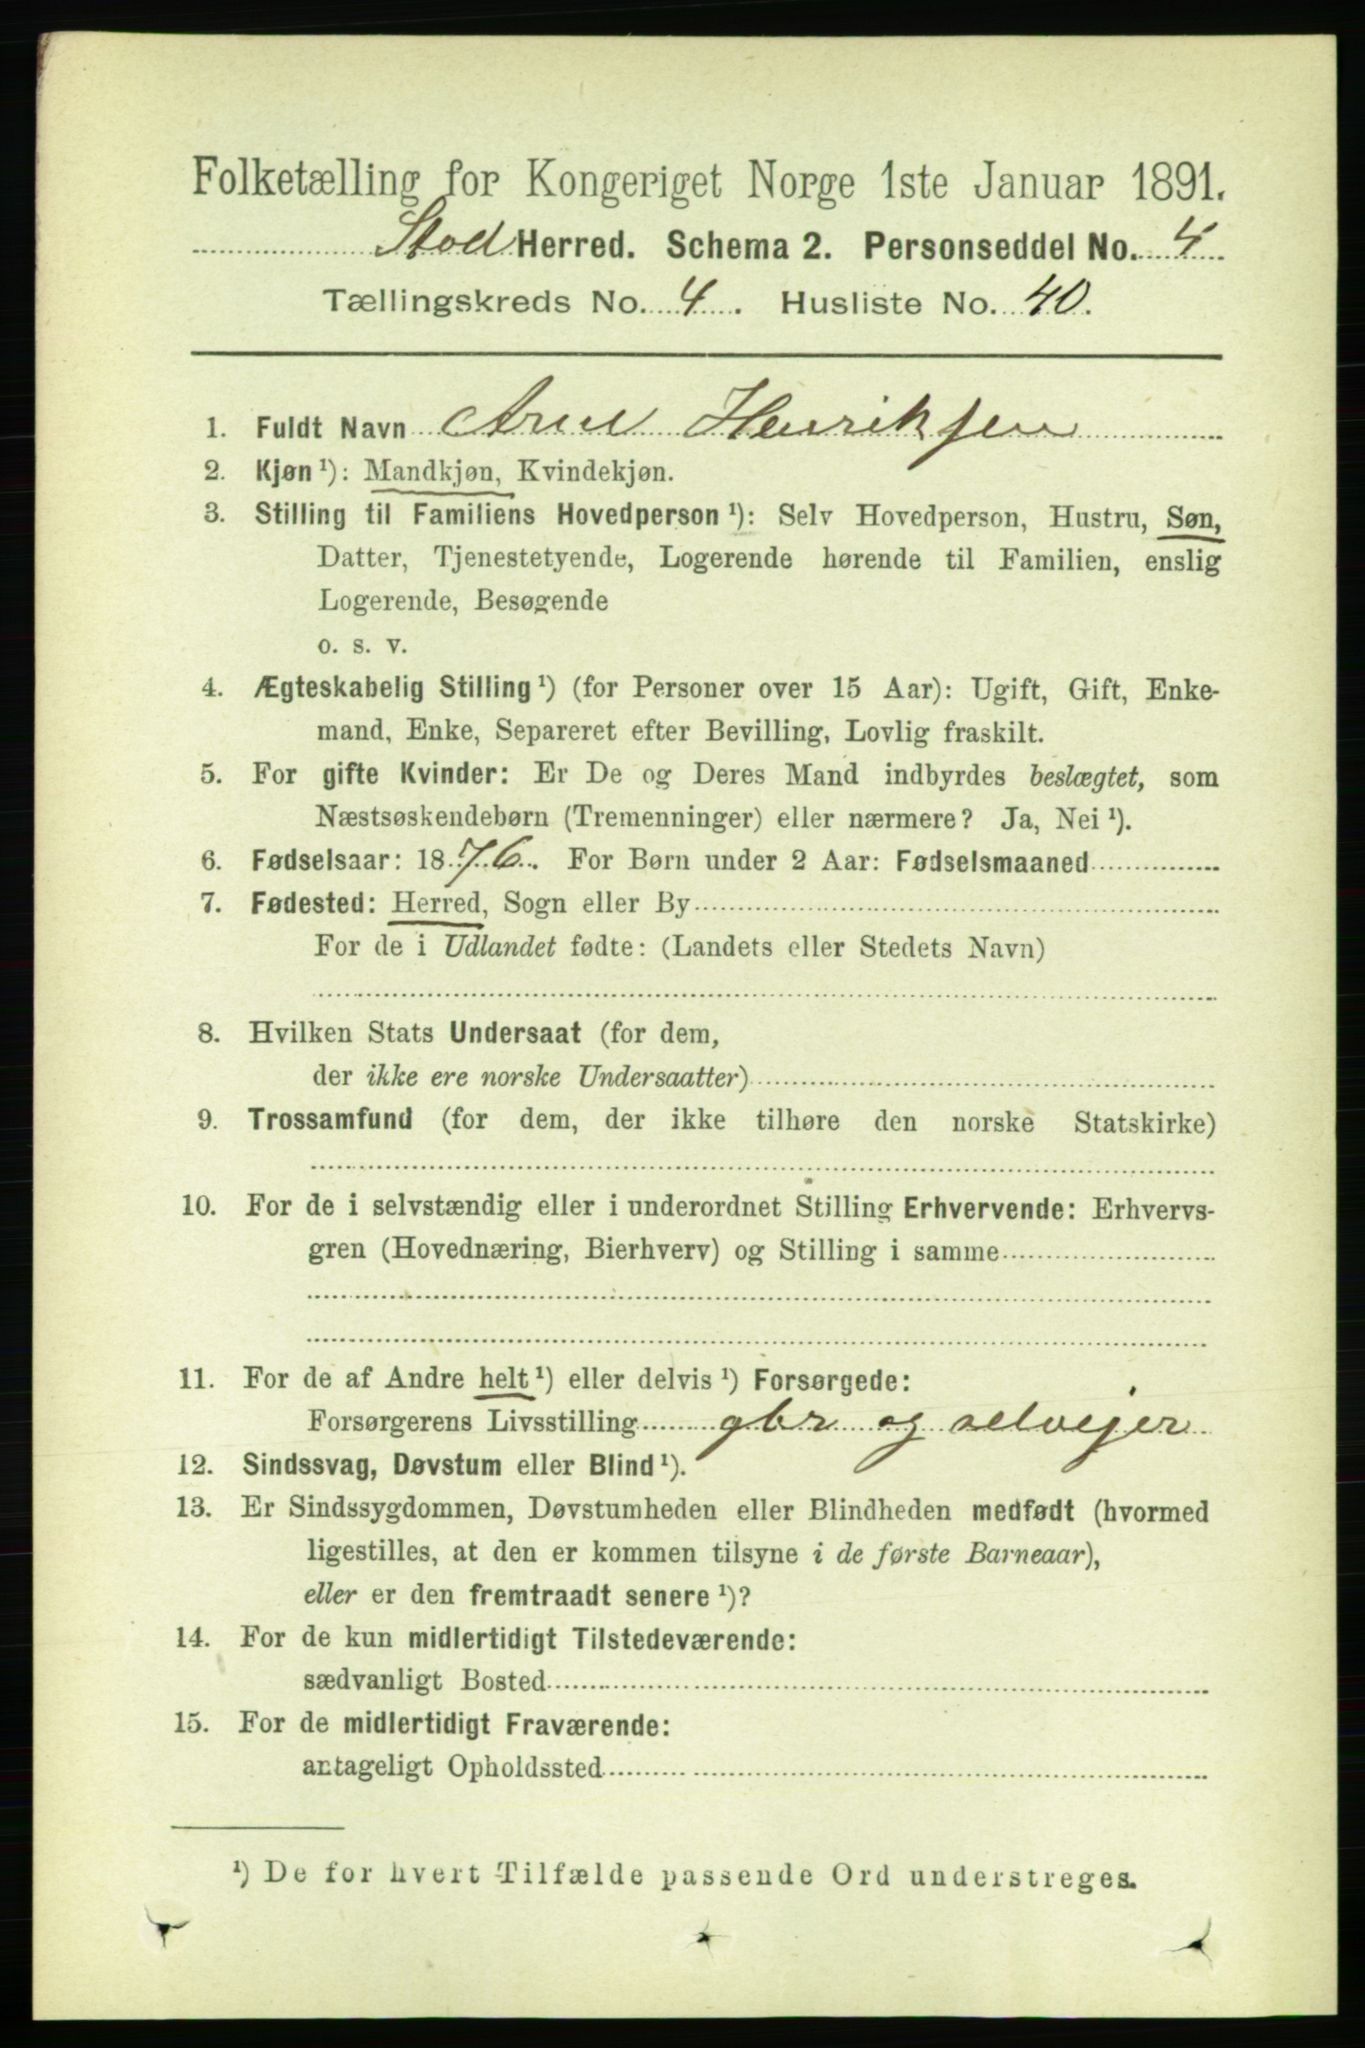 Folketælling for Kongeriget Norge 1ste Januar 1891.
Stod Herred. Schema 2. Personseddel No. 4
Tællingskreds No. 4. Husliste No. 40.
1. Fuldt Navn Arne Henriksen
2. Kjøn ¹): Mandkjøn, Kvindekjøn.
3. Stilling til Familiens Hovedperson ¹): Selv Hovedperson, Hustru, Søn,
Datter, Tjenestetyende, Logerende hørende til Familien, enslig
Logerende, Besøgende
o. s. v.
4. Ægteskabelig Stilling ¹) (for Personer over 15 Aar): Ugift, Gift, Enke-
mand, Enke, Separeret efter Bevilling, Lovlig fraskilt.
5. For gifte Kvinder: Er De og Deres Mand indbyrdes beslægtet, som
Næstsøskendebørn (Tremenninger) eller nærmere? Ja, Nei ¹).
6. Fødselsaar: 1876. For Børn under 2 Aar: Fødselsmaaned
7. Fødested: Herred, Sogn eller By
For de i Udlandet fødte: (Landets eller Stedets Navn)
8. Hvilken Stats Undersaat (for dem,
der ikke ere norske Undersaatter)
9. Trossamfund (for dem, der ikke tilhøre den norske Statskirke)
10. For de i selvstændig eller i underordnet Stilling Erhvervende: Erhvervs-
gren (Hovednæring, Bierhverv) og Stilling i samme
11. For de af Andre helt ¹) eller delvis ¹) Forsørgede:
Forsørgerens Livsstilling gbr og selvejer
12. Sindssvag, Døvstum eller Blind ¹).
13. Er Sindssygdommen, Døvstumheden eller Blindheden medfødt (hvormed
ligestilles, at den er kommen tilsyne i de første Barneaar),
eller er den fremtraadt senere ¹)?
14. For de kun midlertidigt Tilstedeværende:
sædvanligt Bosted
15. For de midlertidigt Fraværende:
antageligt Opholdssted
¹) De for hvert Tilfælde passende Ord understreges.